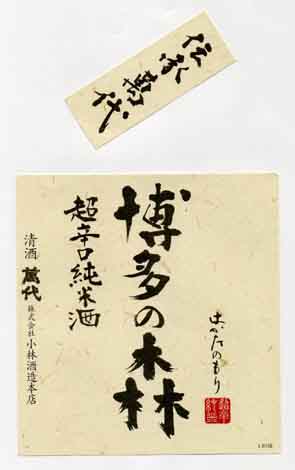 伝承萬代
博多の森
はかたのもり
超辛口純米酒
清酒 萬代 株式会社 小林酒造本店